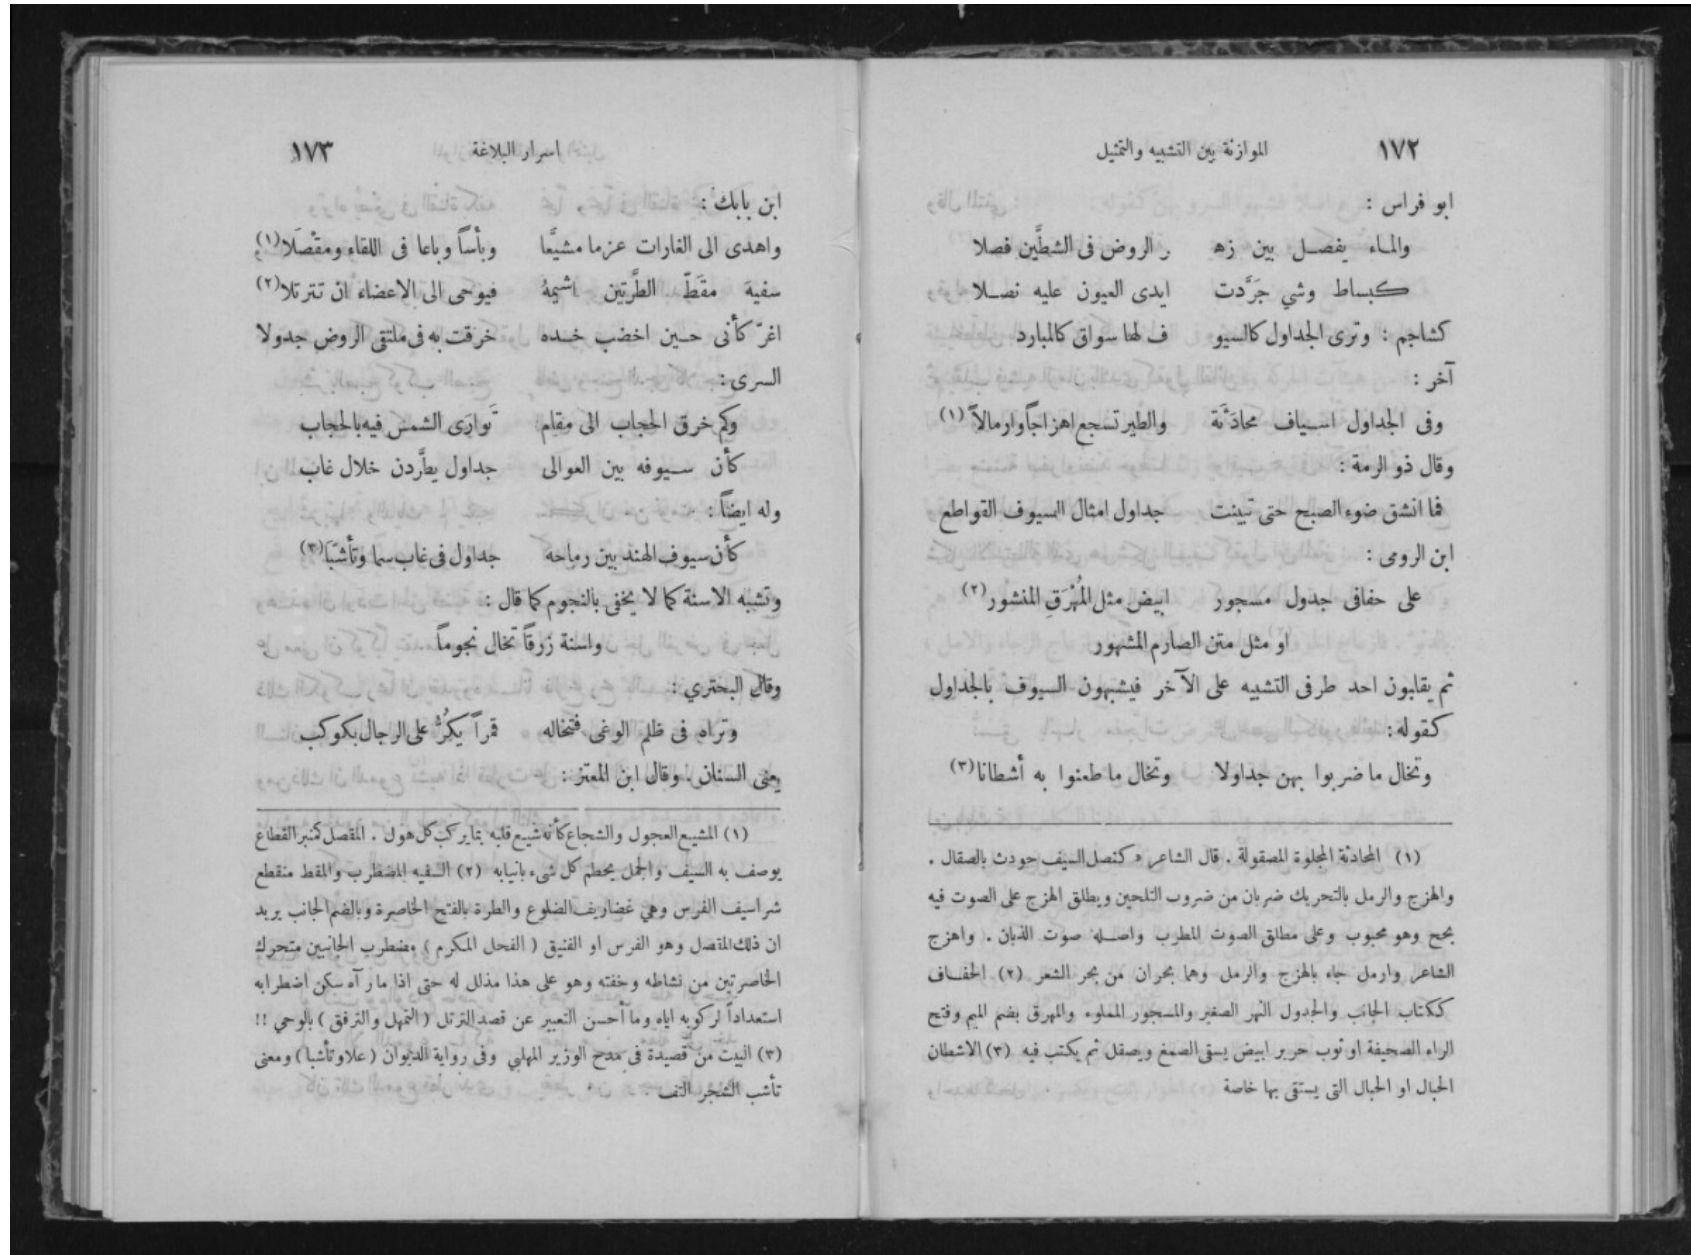 ١٧٢ الموازنة بين التشبيه والتمثيل
ابو فراس :
والماء يفصل بين زهـ ـر الروض فى الشطَّين فصلا
كبساط وشي جَرَّدت ايدى العيون عليه نصلا
كشاجم : وترى الجداول كالسيو ف لها سواق كالمبارد
آخر :
وفى الجداول اسياف محادَثَة والطير تسجع اهزاجاً وارمالاً (١)
وقال ذو الرمة :
فما انشق ضوء الصبح حتى تبينت جداول امثال السيوف القواطع
ابن الرومى :
على حفافى جدول مسجور ابيض مثل المُهْرَقِ المنشور (٢)
او مثل متن الصارم المشهور
ثم يقلبون احد طرفى التشبيه على الآخر فيشبهون السيوف بالجداول
كقوله :
وتخال ما ضربوا بهن جداولا وتخال ما طعنوا به أشطانا (٣)
(١) المحادثة المجلوة المصقولة . قال الشاعر « كنصل السيف حودث بالصقال .
والهزج والرمل بالتحريك ضربان من ضروب التلحين ويطلق الهزج على الصوت فيه
بحح وهو محبوب وعلى مطلق الصوت المطرب واصله صوت الذبان . واهزج
الشاعر وارمل جاء بالهزج والرمل وهما بحران من بحر الشعر (٢) الحفاف
ككتاب الجانب والجدول النهر الصغير والمسجور المملوء والمهرق بضم الميم وفتح
الراء الصحيفة او ثوب حرير ابيض يسقى الصمغ ويصقل ثم يكتب فيه (٣) الاشطان
الحبال او الحبال التى يستقى بها خاصة
اسرار البلاغة ١٧٣
ابن بابك :
واهدى الى الغارات عزما مشيَّعا وبأساً وباعا فى اللقاء ومقْصَلا (١)
سفيه مقَطّ الطَّرتين اشيمهُ فيوحى الى الاعضاء ان تترتلا (٢)
اغرّ كأنى حين اخضب خده خرقت به فى ملتقى الروض جدولا
السرى :
وكم خرق الحجاب الى مقام تَوارَى الشمس فيه بالحجاب
كأن سيوفه بين العوالى جداول يطَّردن خلال غاب
وله ايضاً :
كأن سيوف الهند بين رماحه جداول فى غاب سما وتأشبّا (٣)
وتشبه الاسنة كما لا يخفى بالنجوم كما قال :
واسنة زرقاً تخال نجوماً
وقال البحتري :
وتراه فى ظلم الوغى فتخاله قمراً يكرُّ على الرجال بكوكب
يعنى السنان . وقال ابن المعتز :
(١) المشيع العجول والشجاع كأنه شيع قلبه بما يركب كل هول . المقصل كمنبر القطاع
يوصف به السيف والجمل يحطم كل شىء بانيابه (٢) السفيه المضطرب والمقط منقطع
شراسيف الفرس وهي غضاريف الضلوع والطرة بالفتح الخاصرة وبالضم الجانب يريد
ان ذلك المقصل وهو الفرس او الفنيق ( الفحل المكرم ) مضطرب الجانبين متحرك
الخاصرتين من نشاطه وخفته وهو على هذا مذلل له حتى اذا ما رآه سكن اضطرابه
استعداداً لركوبه اياه وما أحسن التعبير عن قصد الترتل ( التمهل والترفق ) بالوحي !!
(٣) البيت من قصيدة فى مدح الوزير المهلبي وفى رواية الديوان ( علا وتأشبا ) ومعنى
تأشب الشجر التف .